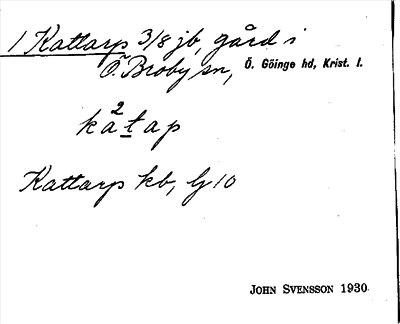 1 Kattarp 3/8 jb, gård i
Ö. Broby sn, Ö. Göinge hd, Krist. l.
kạ̊²ṯap
Kattarp kb, lj 10
JOHN SVENSSON 1930